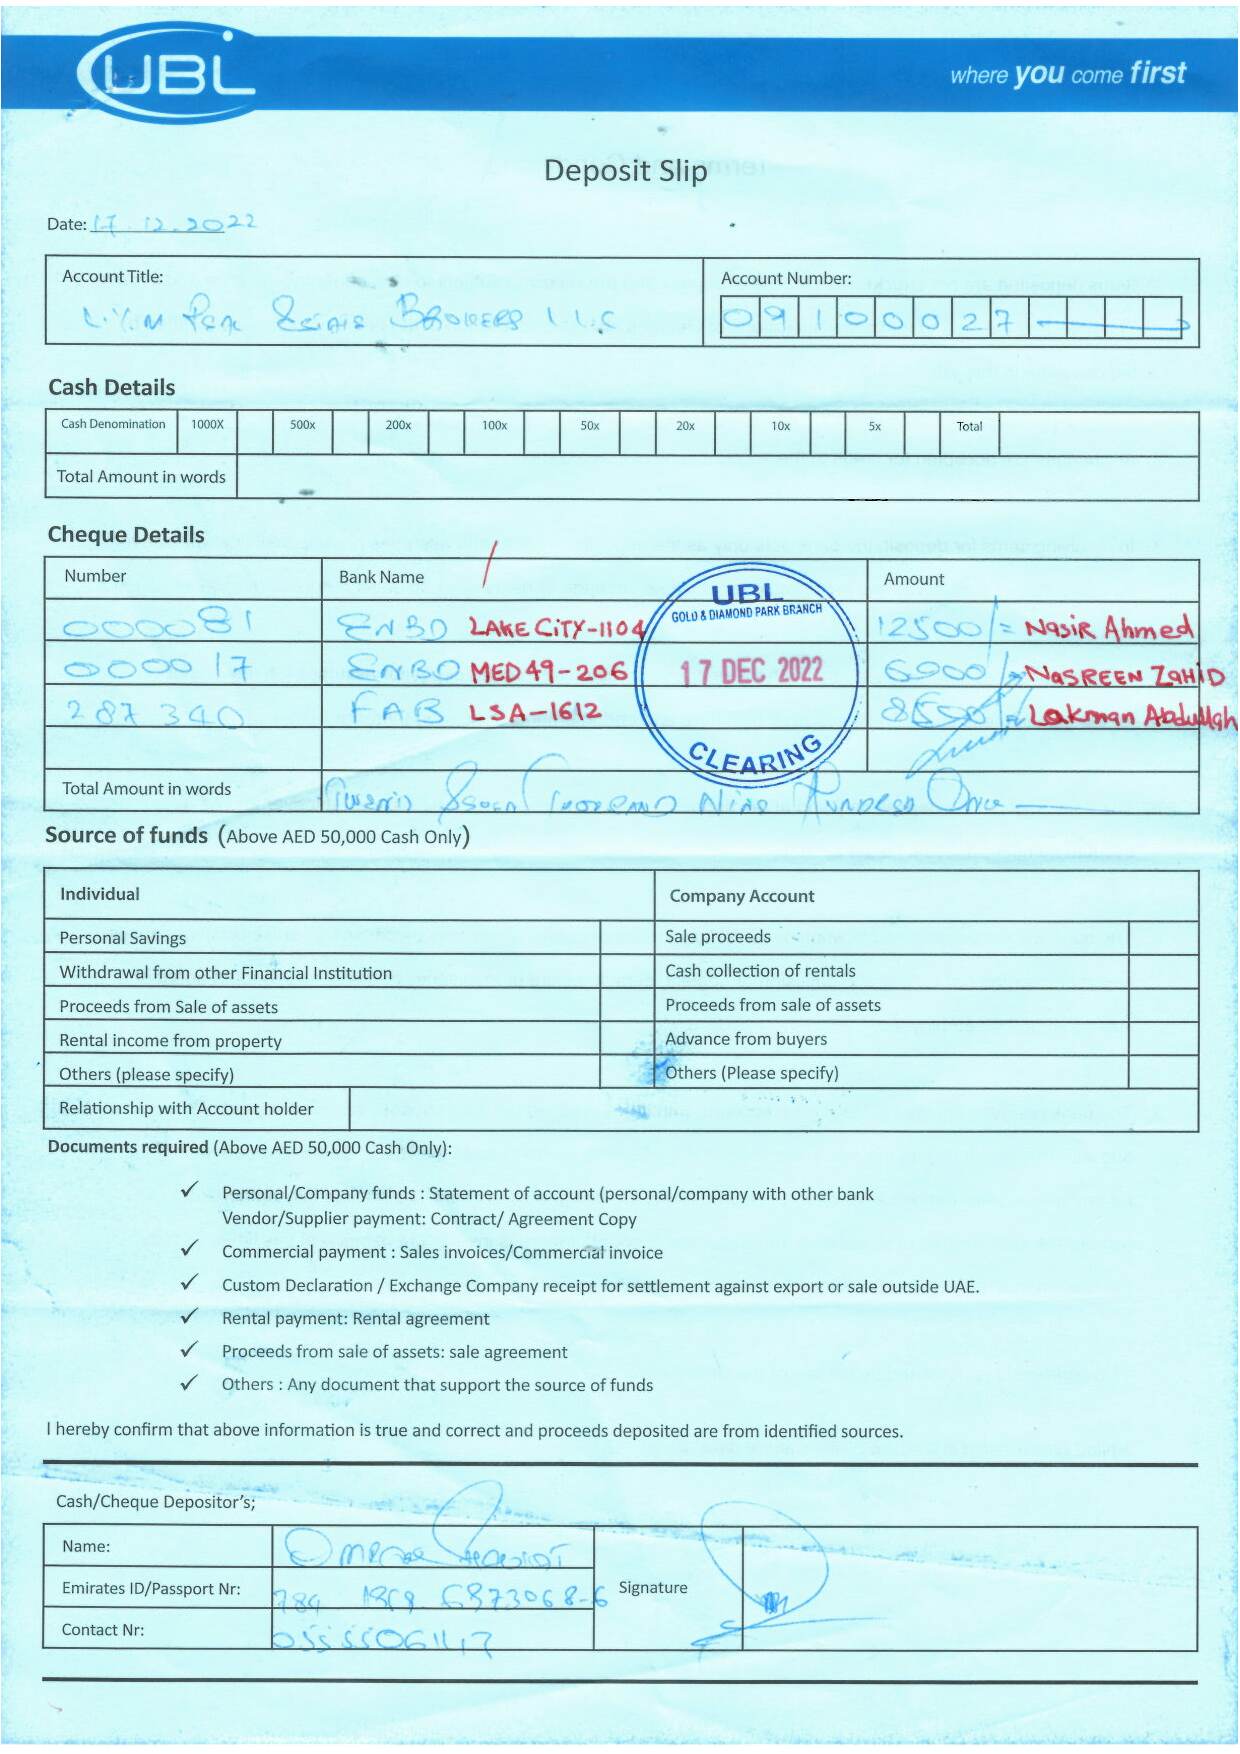 UBL
where you come first
Deposit Slip
Date: 17.12.2022
Account Title:
Account Number:
Real Estate Brokers LLC
09100027
Cash Details
Cash Denomination 1000X 500x 200x 100x 50x 20x 10x 5x Total
Total Amount in words
Cheque Details
Number Bank Name Amount
000081 ENBD LAKE CiTY-1104 12500/= NasiR Ahmed
000017 ENBD MED49-206 6900/= NASREEN ZAHID
287340 FAB LSA-1612 8550/= Lakman Abdullah
UBL
GOLD & DIAMOND PARK BRANCH
17 DEC 2022
CLEARING
Total Amount in words Twenty Seven Thousand Nine Hundred
Source of funds (Above AED 50,000 Cash Only)
Individual Company Account
Personal Savings Sale proceeds
Withdrawal from other Financial Institution Cash collection of rentals
Proceeds from Sale of assets Proceeds from sale of assets
Rental income from property Advance from buyers
Others (please specify) Others (Please specify)
Relationship with Account holder
Documents required (Above AED 50,000 Cash Only):
✓ Personal/Company funds : Statement of account (personal/company with other bank
Vendor/Supplier payment: Contract/ Agreement Copy
✓ Commercial payment : Sales invoices/Commercial invoice
✓ Custom Declaration / Exchange Company receipt for settlement against export or sale outside UAE.
✓ Rental payment: Rental agreement
✓ Proceeds from sale of assets: sale agreement
✓ Others : Any document that support the source of funds
I hereby confirm that above information is true and correct and proceeds deposited are from identified sources.
Cash/Cheque Depositor's;
Name:
Emirates ID/Passport Nr: 784 6873068-6
Signature
Contact Nr: